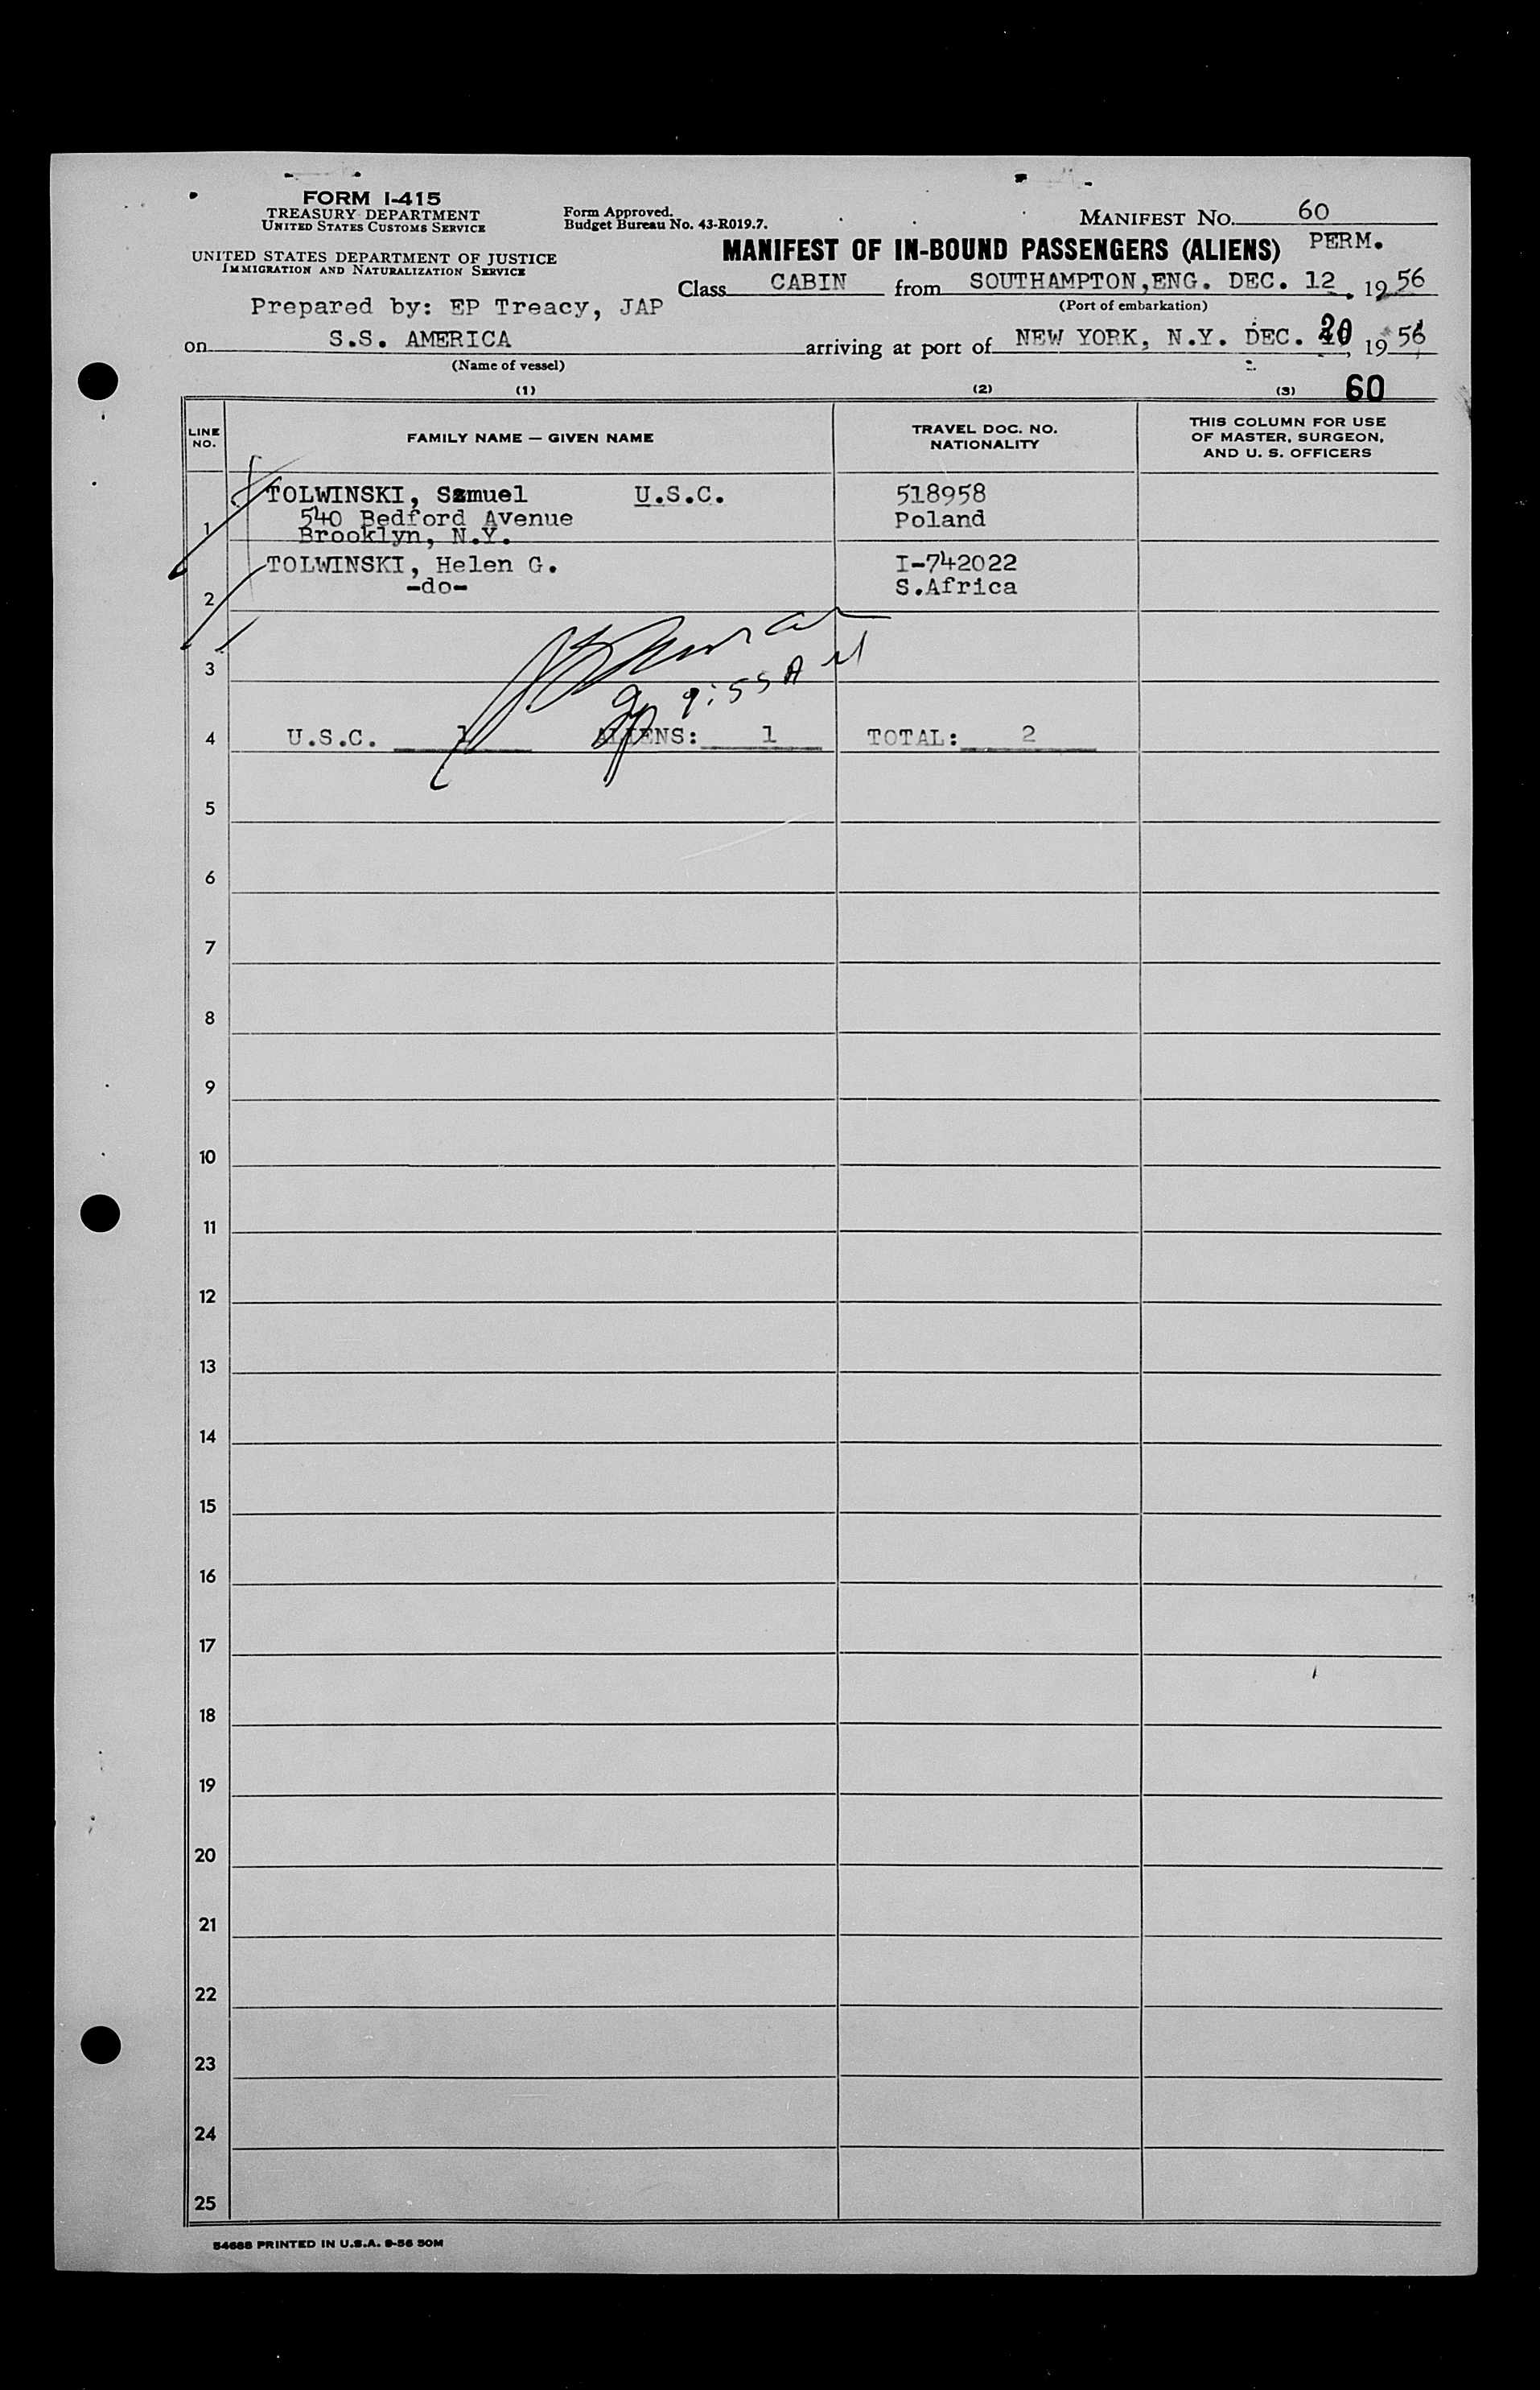 FORM I-415
TREASURY DEPARTMENT
UNITED STATES CUSTOMS SERVICE
Form Approved.
Budget Bureau No. 43-R019.7.
MANIFEST NO. 60
UNITED STATES DEPARTMENT OF JUSTICE
IMMIGRATION AND NATURALIZATION SERVICE
MANIFEST OF IN-BOUND PASSENGERS (ALIENS) PERM.
Class CABIN from SOUTHAMPTON,ENG. DEC. 12, 1956
(Port of embarkation)
Prepared by: EP Treacy, JAP
on S.S. AMERICA arriving at port of NEW YORK, N.Y. DEC. 20, 1956
(Name of vessel)
(1) (2) (3) 60
LINE NO. FAMILY NAME — GIVEN NAME TRAVEL DOC. NO. NATIONALITY THIS COLUMN FOR USE OF MASTER, SURGEON, AND U. S. OFFICERS
TOLWINSKI, Samuel U.S.C. 518958
1 540 Bedford Avenue Poland
Brooklyn, N.Y.
TOLWINSKI, Helen G. I-742022
2 -do- S.Africa
3 9:55 A
4 U.S.C. 1 ALIENS: 1 TOTAL: 2
5
6
7
8
9
10
11
12
13
14
15
16
17
18
19
20
21
22
23
24
25
54688 PRINTED IN U.S.A. 9-56 50M